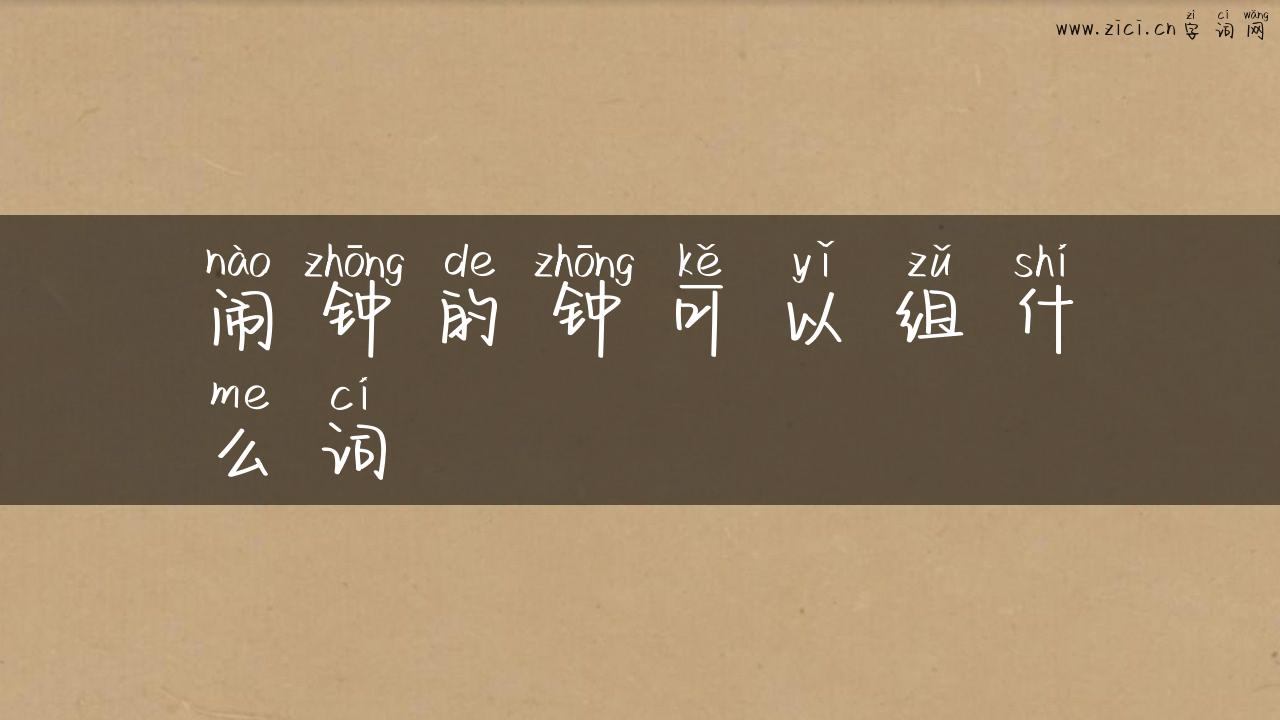 www.zici.cn 字词网
zì cí wǎng
nào zhōng de zhōng kě yǐ zǔ shí
闹钟的钟可以组什
me cí
么词